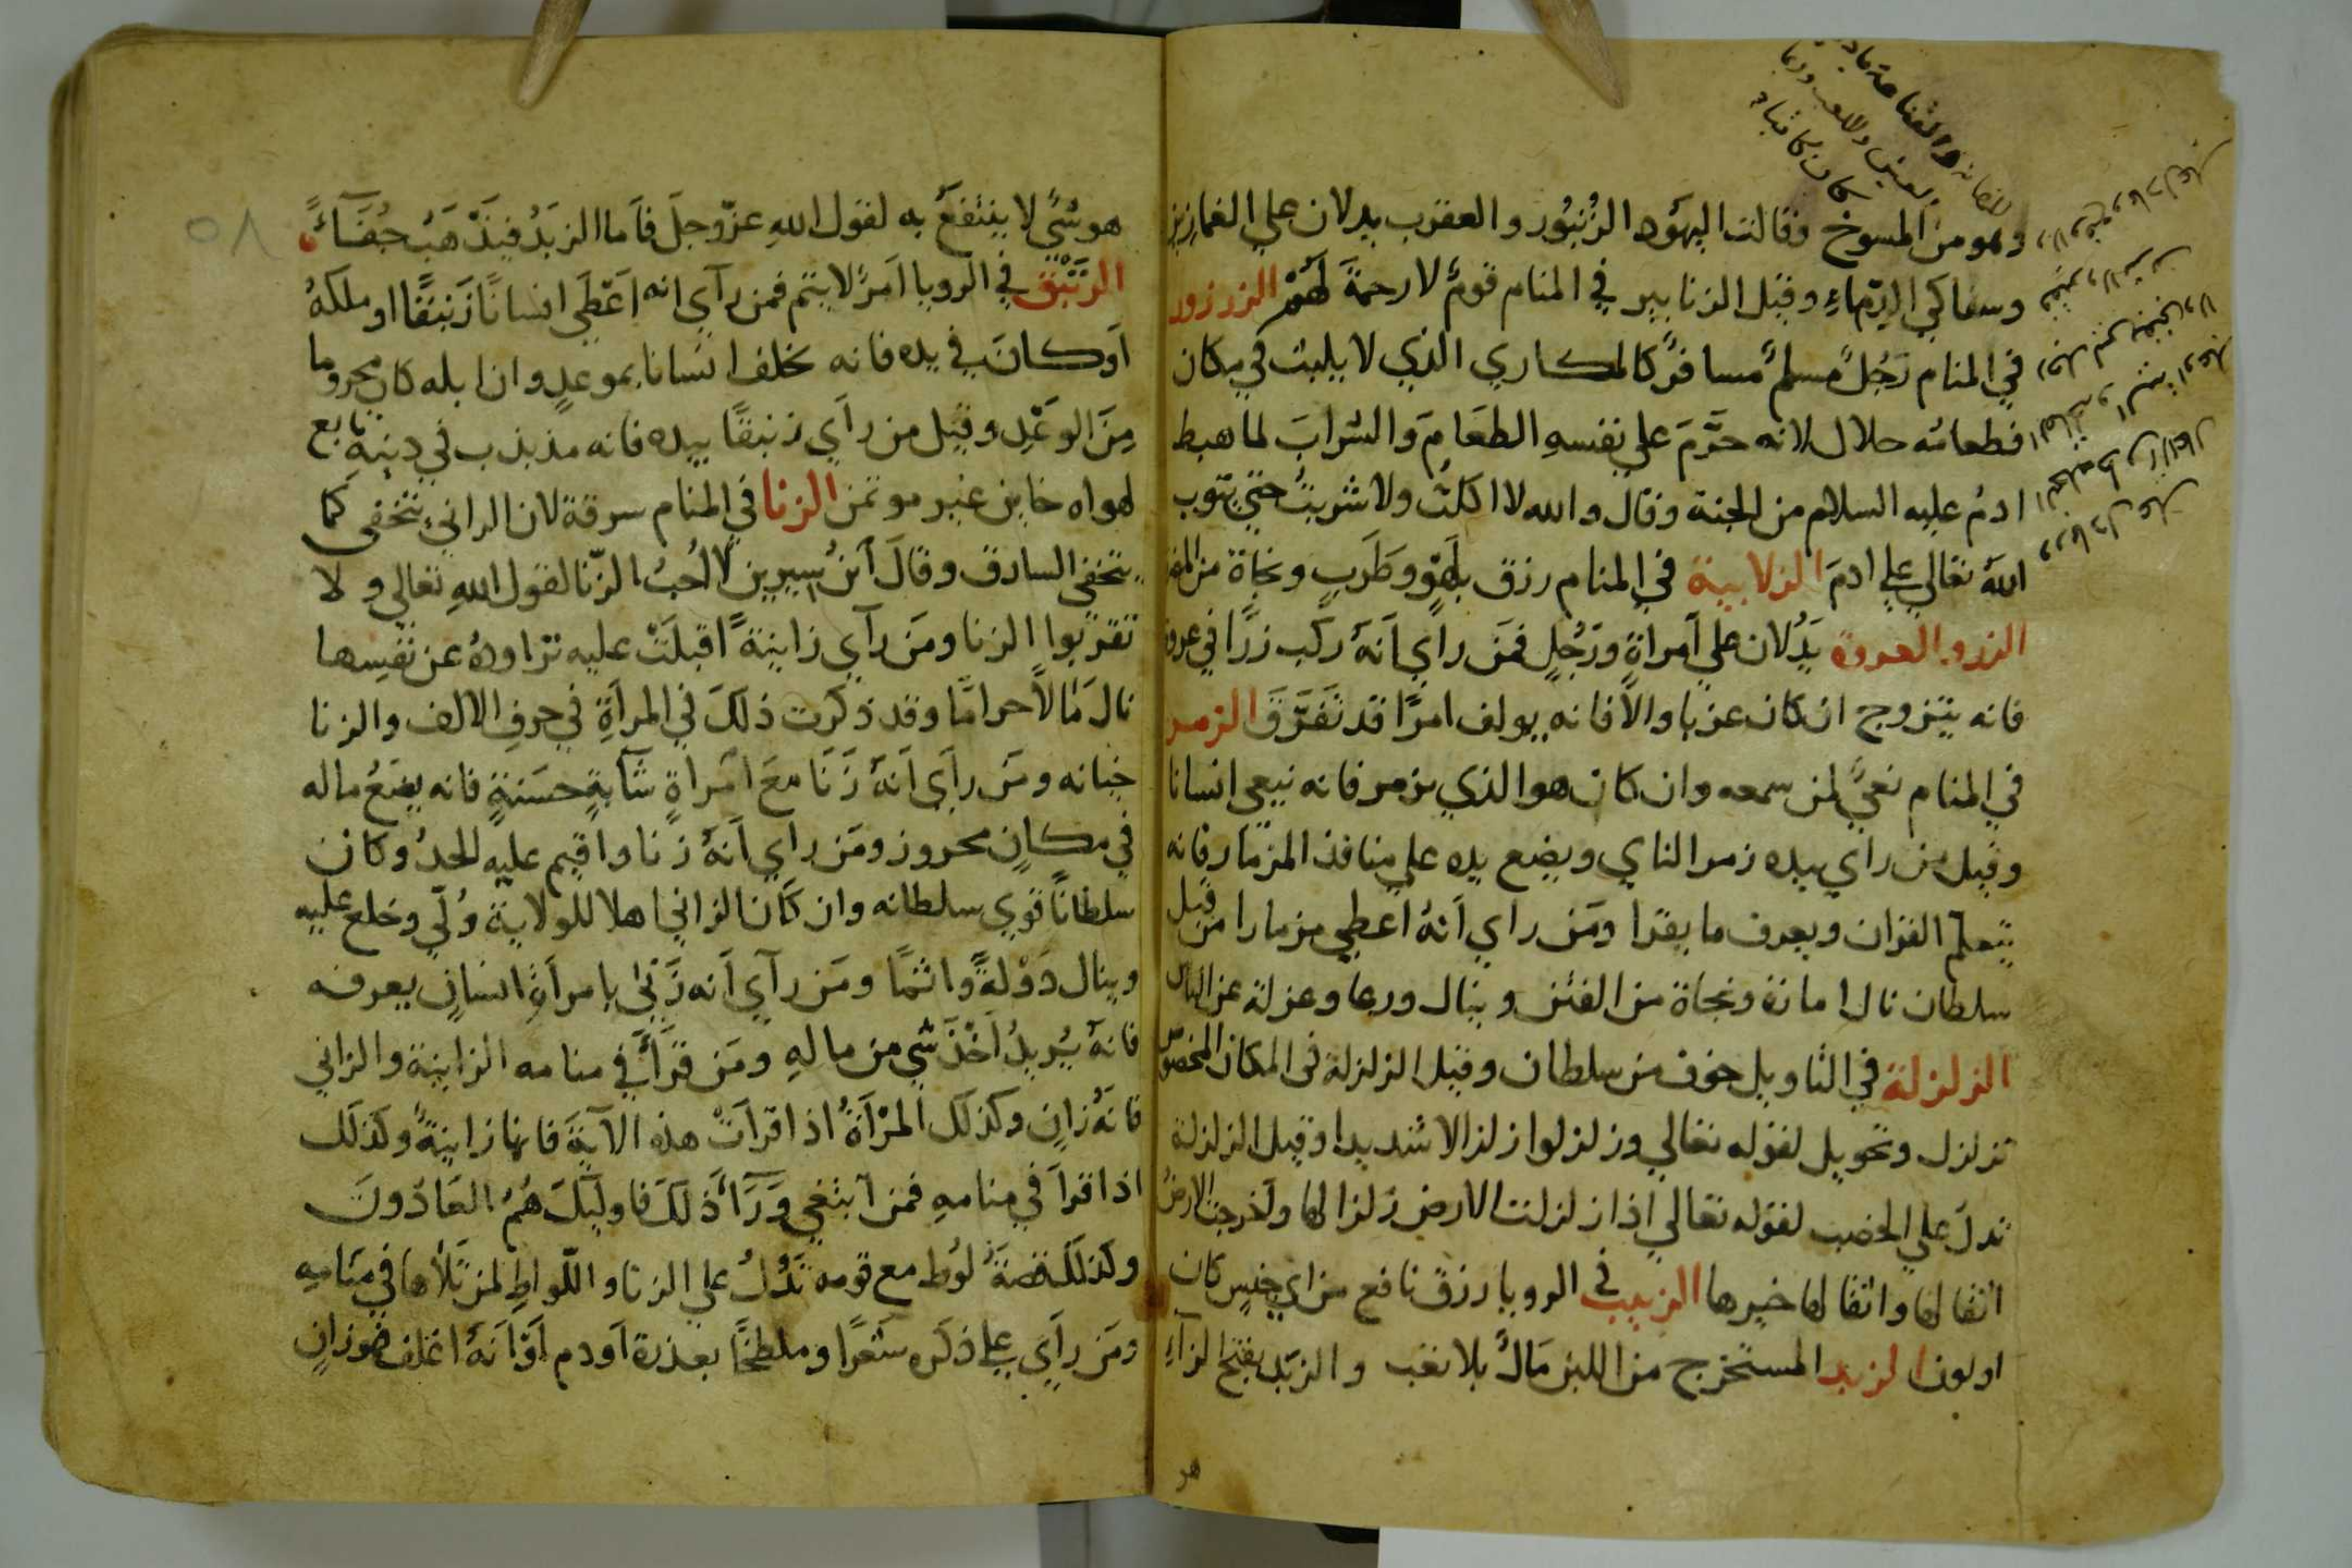 وهو من المسوخ وقالت اليهود الزنبور والعقرب يدلان علي الغمازين
وسفاكي الدماء وقيل الزنابير في المنام قوم لا رحمة لهم الزرزور
في المنام رجل مسلم مسافر كالمكاري الذي لا يلبث في مكان
فطعامه حلال لانه حرم علي نفسه الطعام والشراب لما هبط
ادم عليه السلام من الجنة وقال والله لا اكلت ولا شربت حتي يتوب
الله تعالي علي ادم الزلابية في المنام رزق بلهو وطرب ونجاة من
الزر والعروة يدلان علي امراة ورجل فمن راي انه ركب زرا في عروة
فانه يتزوج ان كان عزبا والا فانه يولف امرا قد تفرق الزمر
في المنام نعي لمن سمعه وان كان هو الذي يزمر فانه ينعي انسانا
وقيل من راي بيده زمر الناي ويضع يده علي منافذ المزمار فانه
يتعلم القران ويعرف ما يقرا ومن راي انه اعطي مزمارا من قبل
سلطان نال امانة ونجاة من الفتن وينال ورعا وعزلة عن الناس
الزلزلة في التاويل خوف من سلطان وقيل الزلزلة في المكان المخصوص
تزلزل وتحويل لقوله تعالي وزلزلوا زلزالا شديدا وقيل الزلزلة
تدل علي الخصب لقوله تعالي اذا زلزلت الارض زلزالها واخرجت الارض
اثقالها واثقالها خيرها الزبيب في الرويا رزق نافع من اي جنس كان
او لون الزبد المستخرج من اللبن مال بلا تعب والزبد بفتح الزاء
هو
٥٨
هو شي لا ينتفع به لقول الله عز وجل فاما الزبد فيذهب جفاء
الزئبق في الرويا امر لا يتم فمن راي انه اعطي انسانا زئبقا او ملكه
او كان في يده فانه يخلف انسانا بموعد وان ابله كان محروما
من الوعد وقيل من راي زئبقا بيده فانه مذبذب في دينه تابع
لهواه خاين غير موتمن الزنا في المنام سرقة لان الزاني يتخفى كما
يتخفي السارق وقال ابن سيرين لا احب الزنا لقول الله تعالي ولا
تقربوا الزنا ومن راي زانية اقبلت عليه تراوده عن نفسها
نال مالا حراما وقد ذكرت ذلك في المراة في حرف الالف والزنا
خيانه ومن راي انه زنا مع امراة شابة حسنة فانه يضع ماله
في مكان محروز ومن راي انه زنا واقيم عليه الحد وكان
سلطانا قوي سلطانه وان كان الزاني اهلا للولاية ولي وخلع عليه
وينال دولة واثما ومن راي انه زني بامراة انسان يعرفه
فانه يريد اخذ شي من ماله ومن قرا في منامه الزانية والزاني
فانه زان وكذلك المراة اذا قرات هذه الاية فانها زانية وكذلك
اذا قرا في منامه فمن ابتغي وراء ذلك فاولئك هم العادون
وكذلك قصة لوط مع قومه تدل علي الزنا واللواط لمن تلاها في منامه
ومن راي علي ذكره شعرا وملطخا بعذرة او دم او انه اغلف فهو زان